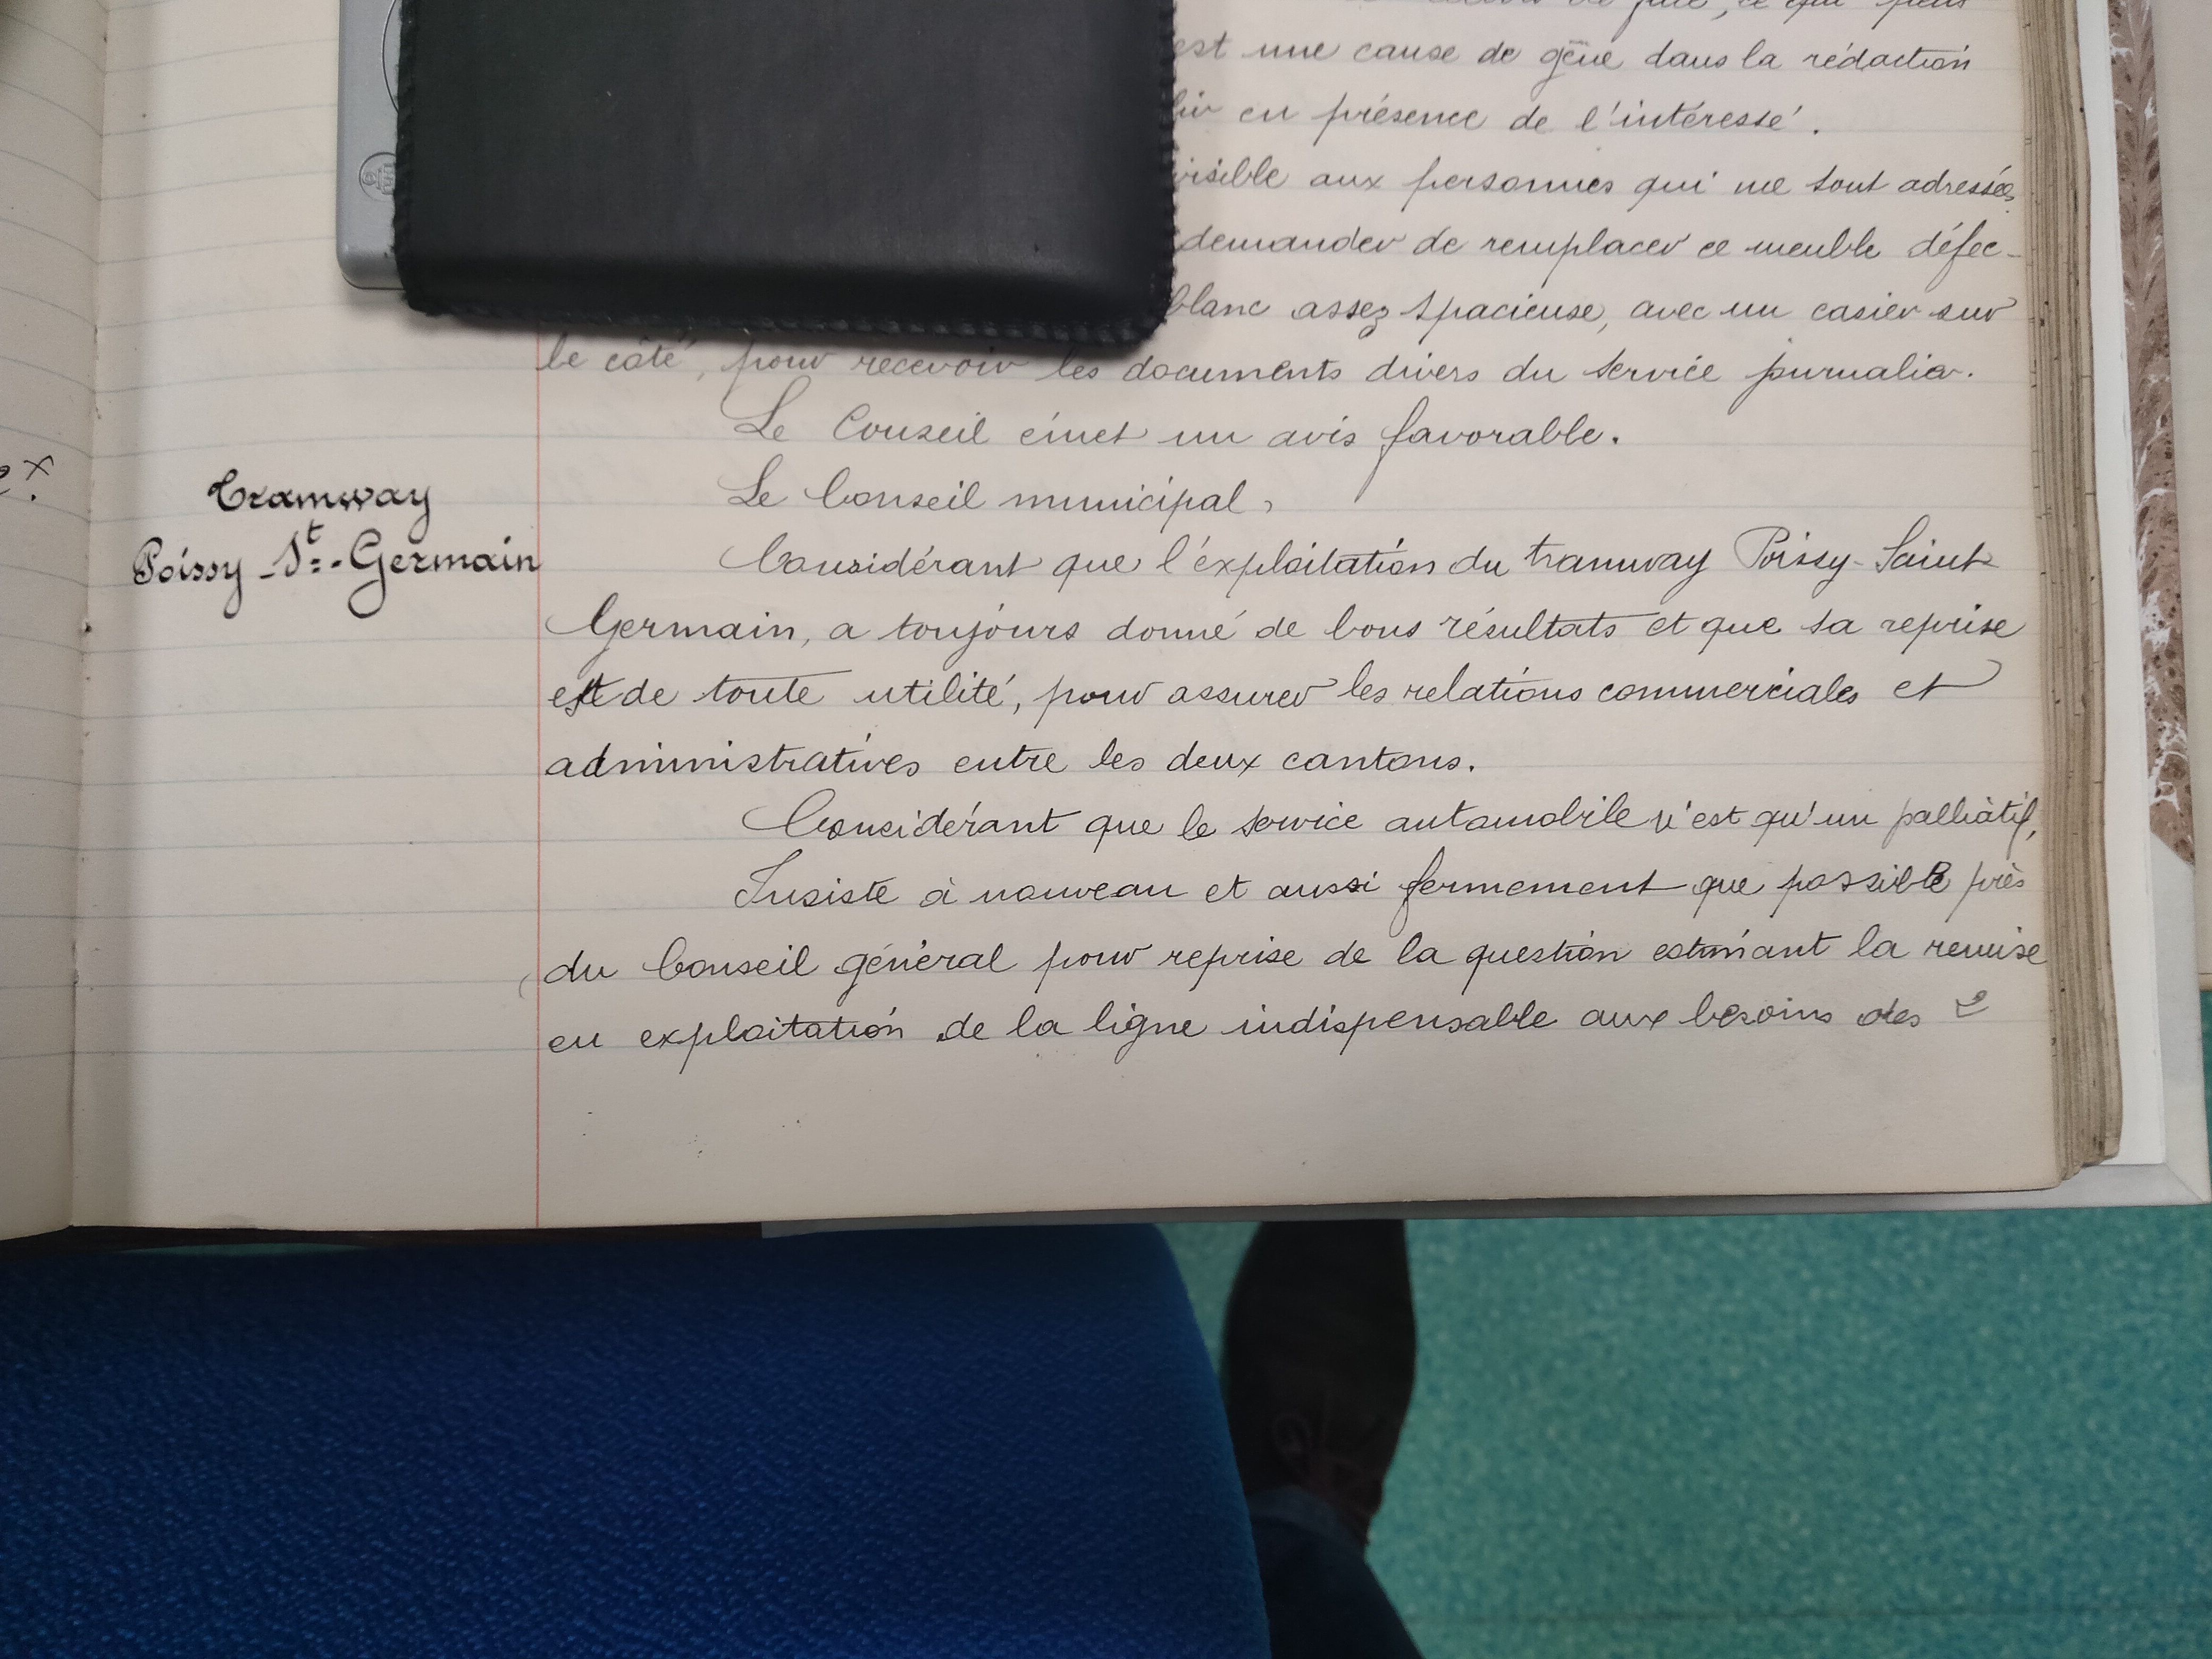 est une cause de gêne dans la rédaction
en présence de l'intéressé.
visible aux personnes qui me sont adressées
demander de remplacer ce meuble défec-
blanc assez spacieuse, avec un casier sur
le côté, pour recevoir les documents divers du service journalier.
Le Conseil émet un avis favorable.
Le Conseil municipal,
Tramway
Poissy-St-Germain
Considérant que l'exploitation du tramway Poissy-Saint
Germain, a toujours donné de bons résultats et que sa reprise
est de toute utilité, pour assurer les relations commerciales et
administratives entre les deux cantons.
Considérant que le service automobile n'est qu'un palliatif,
Insiste à nouveau et aussi fermement que possible près
du Conseil général pour reprise de la question estimant la remise
en exploitation de la ligne indispensable aux besoins des